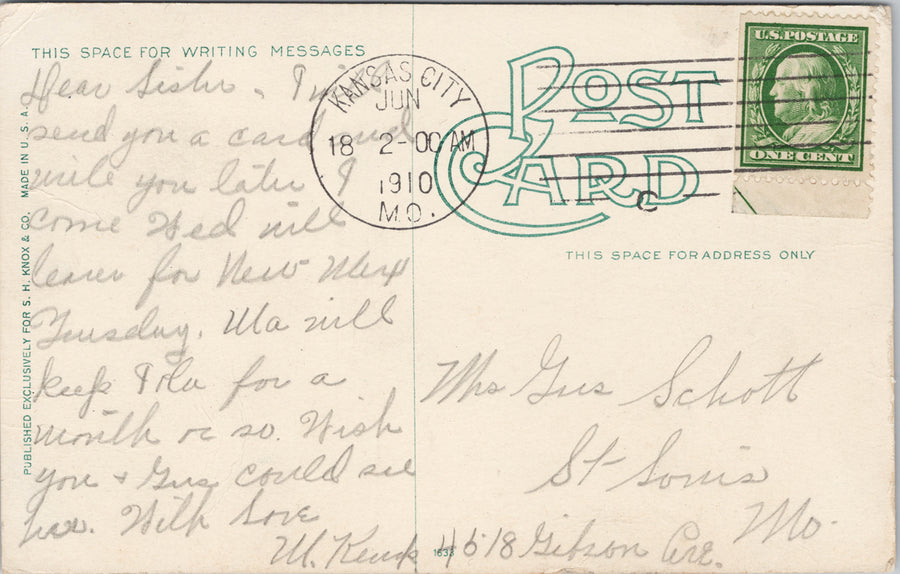 THIS SPACE FOR WRITING MESSAGES
Dear Sister, I'll
send you a card and
write you later I
come Wed will
leave for New Mex
Tuesday. Ma will
keep Iola for a
month or so. Wish
you + Gus could see
her. With Love
M.
PUBLISHED EXCLUSIVELY FOR S. H. KNOX & CO. MADE IN U. S. A.
KANSAS CITY
JUN
18 2-00 AM
1910
MO.
POST
CARD
C
U.S. POSTAGE
ONE CENT
THIS SPACE FOR ADDRESS ONLY
Mrs Gus Schott
St Louis
Mo.
4518 Gibson Ave.
1633